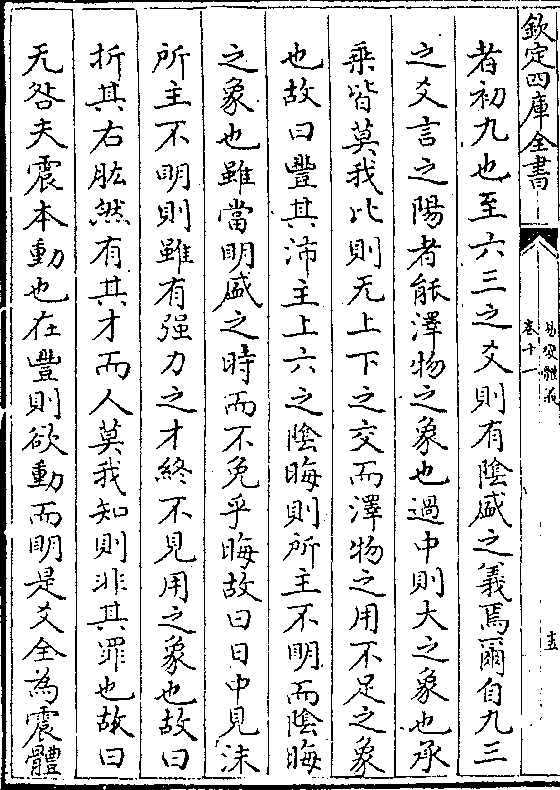 欽定四庫全書
易變體義
卷十一
十五
者初九也至六三之爻則有陰盛之義焉爾自九三
之爻言之陽者能澤物之象也過中則大之象也承
乘皆莫我比則无上下之交而澤物之用不足之象
也故曰豐其沛主上六之陰晦則所主不明而陰晦
之象也雖當明盛之時而不免乎晦故曰日中見沬
所主不明則雖有强力之才終不見用之象也故曰
折其右肱然有其才而人莫我知則非其罪也故曰
无咎夫震本動也在豐則欲動而明是爻全為震體